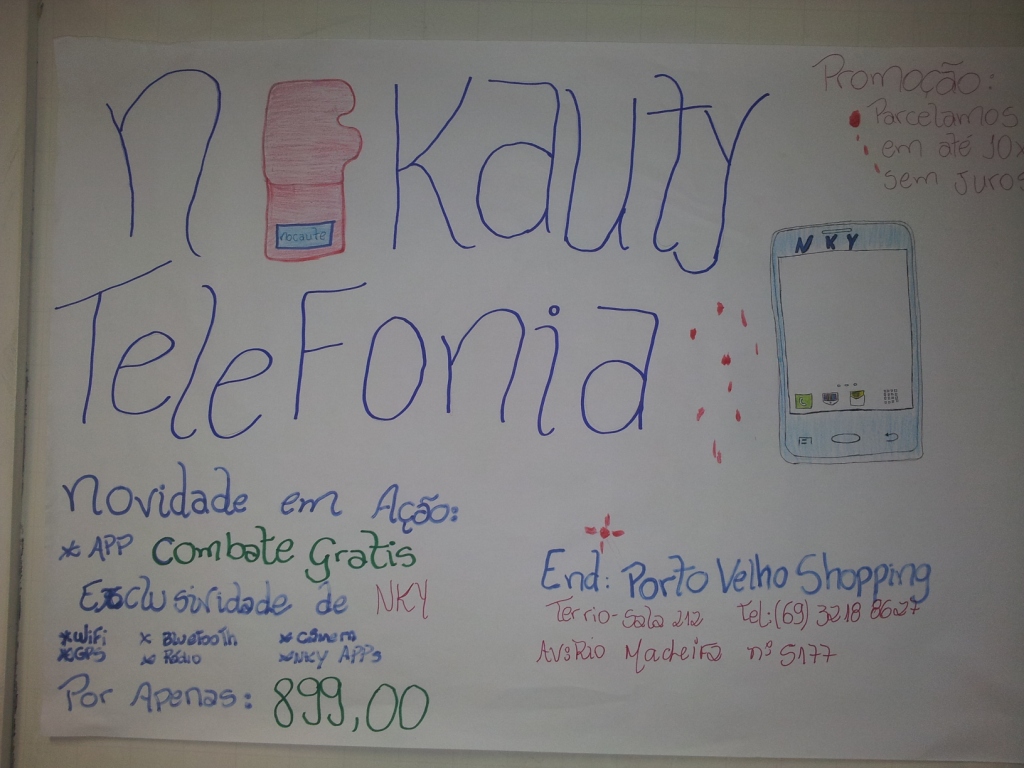 nokauty
nocaute
Telefonia
Promoção:
Parcelamos
em até 10x
sem juros
NKY
Novidade em Ação:
* APP Combate Gratis
Exclusividade de NKY
*WiFi * Bluetooth * Câmera
*GPS * Rádio *NKY APPs
Por Apenas: 899,00
End: Porto Velho Shopping
Terrio-Sala 212 Tel:(69) 3218 8627
Av:Rio Madeira nº 5177